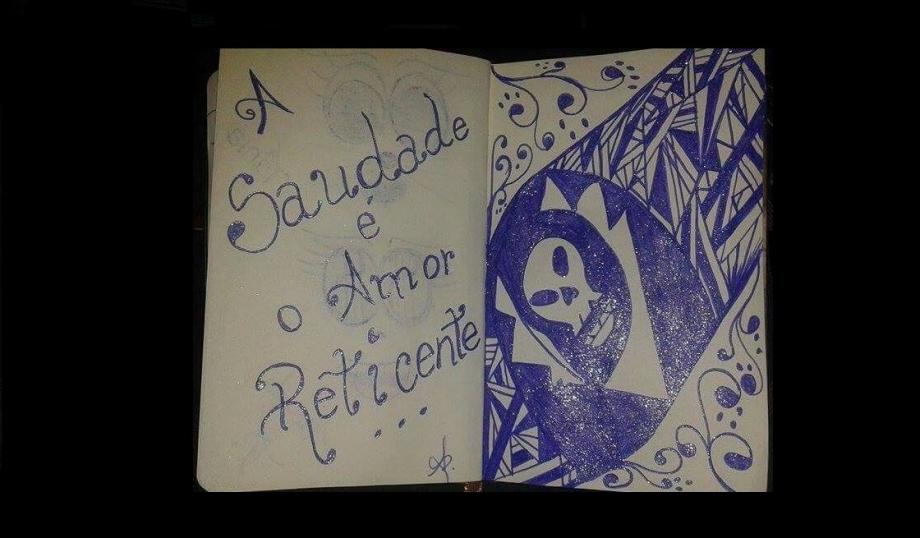 A
Saudade
é
o Amor
Reticente
...